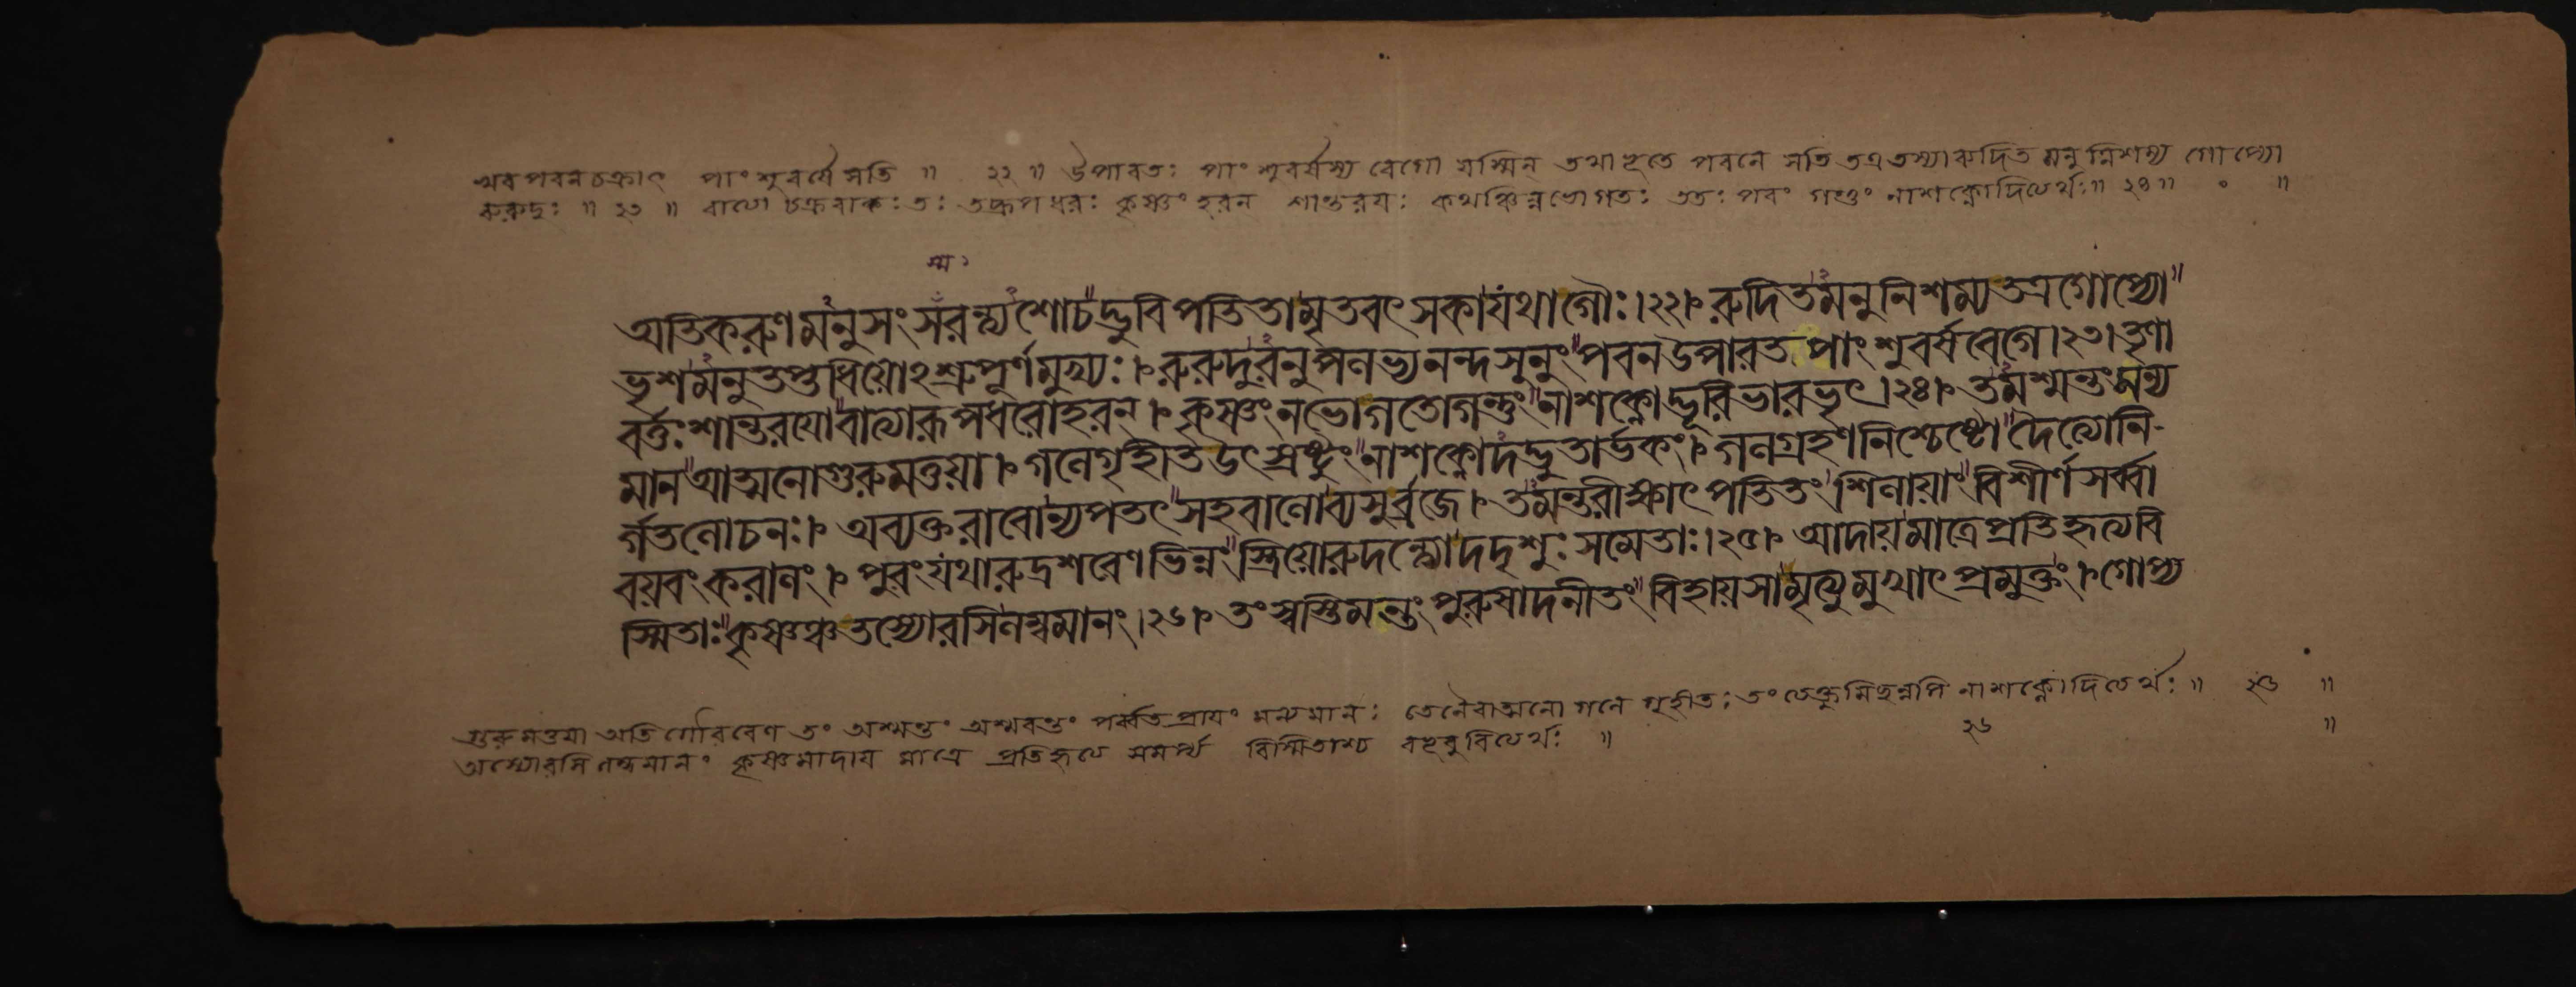 খরপবনচক্রাৎ পাংশুবর্ষে সতি ॥ ২২ ॥ উপারতঃ পাংশুবর্ষস্য বেগো যস্মিন্ তথাভূতে পবনে সতি তত্র তস্যারুদিত মনু নিশম্য গোপ্যো
রুরুদুঃ ॥ ২৩ ॥ বাত্যা চক্রবাকঃ তঃ তদ্রূপধরঃ কৃষ্ণং হরন্ শান্তরয়ঃ কথঞ্চিন্নভোগতঃ ততঃ পরং গন্তুং নাশক্নোদিত্যর্থঃ ॥ ২৪ ॥ ॰ ॥
স্ম ১
অতিকরুণমনুসংস্মরন্ত্যশোচদ্ভুবিপতিতামৃতবৎসকাযথাগৌঃ।২২। রুদিতমনুনিশম্যতত্রগোপ্যো॥
ভৃশমনুতপ্তধিয়োঽশ্রুপূর্ণমুখ্যঃ। রুরুদুরনুপলভ্যনন্দসূনুং॥পবনউপারতপাংশুবর্ষবেগে।২৩।তৃণা
বর্ত্তঃশান্তরয়োবাত্যারূপধরোহরন্। কৃষ্ণংনভোগতোগন্তুং॥নাশক্নোদ্ভূরিভারভৃৎ।২৪। তমশ্মন্তংমন্য
মান॥আত্মনোগুরুমত্তয়া। গলেগৃহীতউৎস্রষ্টুং॥নাশক্নোদদ্ভুতার্ভকং। গলগ্রহণনিশ্চেষ্টো॥দৈত্যোনি-
র্গতলোচনঃ। অব্যক্তরাবোন্যপতৎ॥সহবালোব্যসুর্ব্রজে। তমন্তরীক্ষাৎপতিতংশিলায়াং॥বিশীর্ণসর্ব্বা
বয়বংকরালং। পুরংযথারুদ্রশরেণভিন্নং॥স্ত্রিয়োরুদন্ত্যোদদৃশুঃসমেতাঃ।২৫। আদায়মাত্রেপ্রতিহৃত্যবি
স্মিতাঃ॥কৃষ্ণঞ্চতস্যোরসিলম্বমানং।২৬। তংস্বস্তিমন্তংপুরুষাদনীতং॥বিহায়সামৃত্যুমুখাৎপ্রমুক্তং। গোপ্য
গুরুমত্তয়া অতিগৌরবেণ তং অশ্মন্তং অশ্মবন্তং পর্ব্বতপ্রায়ং মন্যমানঃ তেনৈবাত্মনো গলে গৃহীতঃ তং ত্যেক্তুমিচ্ছন্নপি নাশক্নোদিত্যর্থঃ ॥ ২৫ ॥
তস্যোরসি লম্বমানং কৃষ্ণমাদায় মাত্রে প্রতিহৃত্য সমর্প্য বিস্মিতাশ্চ বভূবুরিত্যর্থঃ ॥ ২৬ ॥